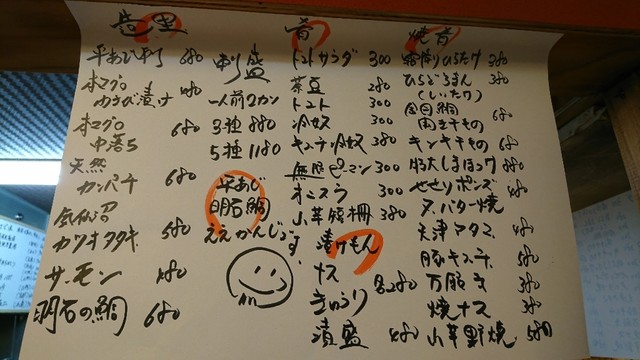 造里
平あじ刺し 680
本マグロ
ゆうび漬け 480
本マグロ
中落ち 680
天然
カンパチ 680
気仙沼
カツオタタキ 580
サーモン 480
明石の鯛 680
刺盛
一人前2カン
3種 880
5種 1180
平あじ
明石鯛
ええかんじです
肴
トマトサラダ 300
茶豆 280
トマト 300
冷奴 300
キムチ冷奴 380
無限ピーマン 300
オニスラ 300
山芋短冊 380
漬けもん
ナス
きゅうり 各280
漬盛 480
焼肴
霜降りひらたけ 380
ひらどろまん 380
(しいたけ)
金目鯛
肉干もの 680
キンキ干もの 680
特大しまほっけ 880
せせりポンズ 480
ズ、バター焼
天津アタマ 480
豚キムチ 580
万願寺 380
焼ナス 380
山芋鉄焼 580